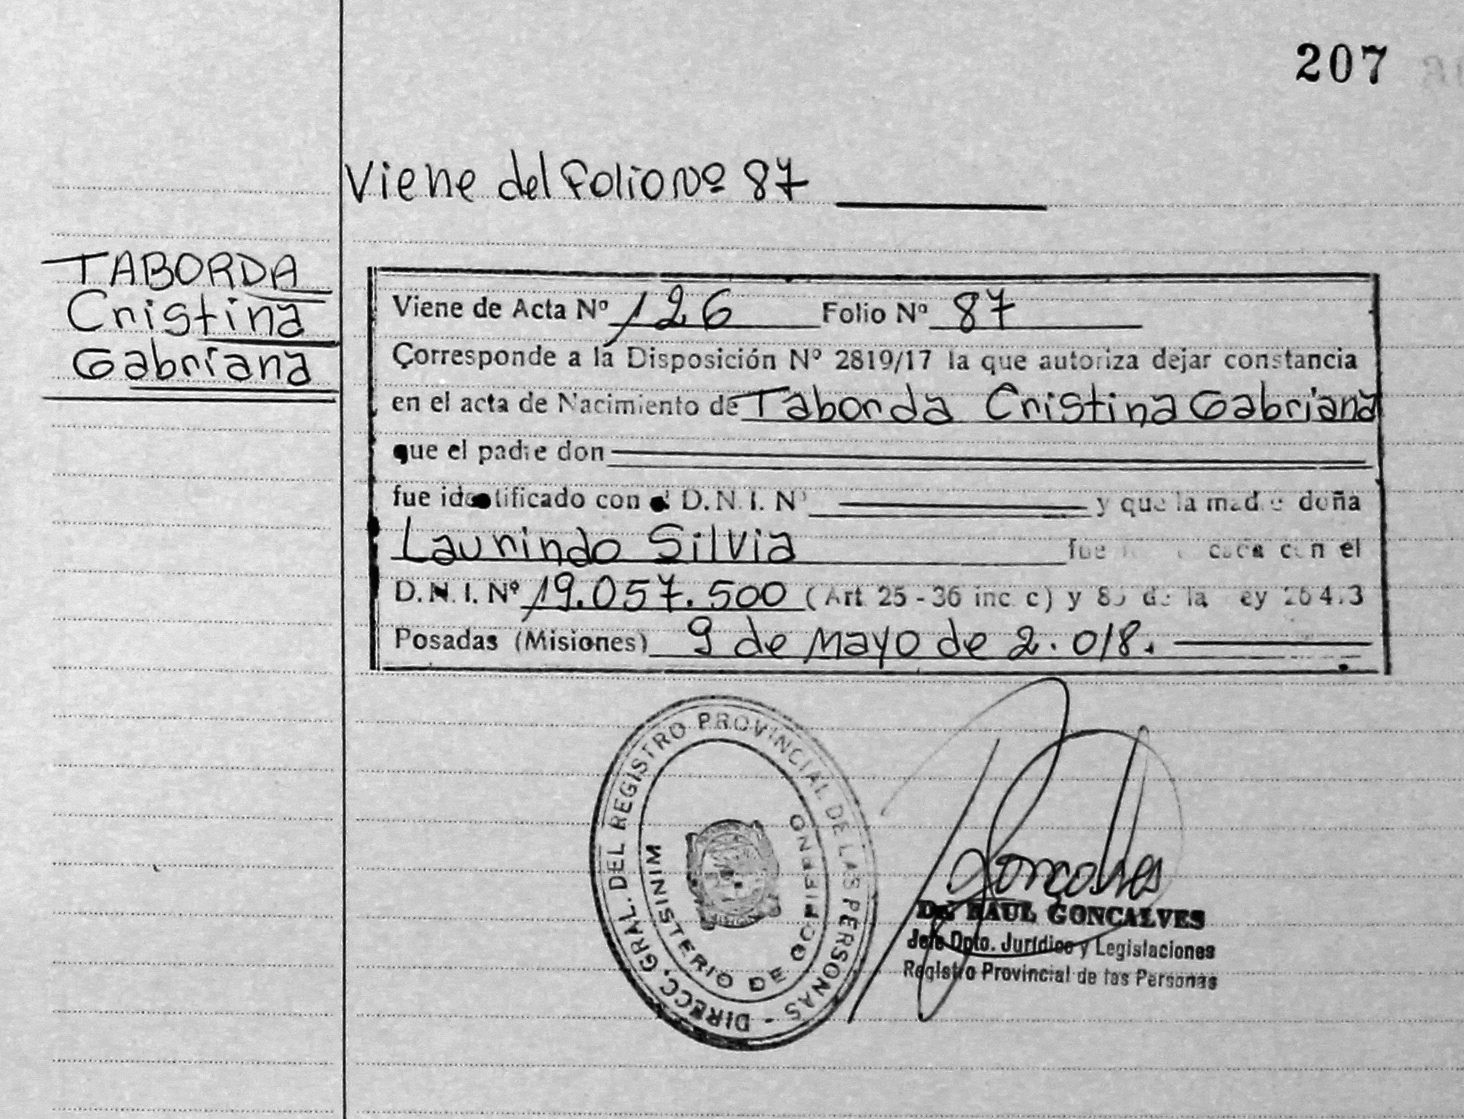 207
Viene del Folio Nº 87
TABORDA
Cristina
Gabriana
Viene de Acta Nº 126 Folio Nº 87
Corresponde a la Disposición Nº 2819/17 la que autoriza dejar constancia
en el acta de Nacimiento de Taborda Cristina Gabriana
que el padre don
fue identificado con el D.N.I. Nº y que la madre doña
Laurindo Silvia fue con el
D.N.I. Nº 19.057.500 (Art 25 - 36 inc c) y de la
Posadas (Misiones) 9 de Mayo de 2.018.
DIRECC. GRAL. DEL REGISTRO PROVINCIAL DE LAS PERSONAS -
MINISTERIO DE GOBIERNO
Goncalves
Dr. RAUL GONCALVES
Jefe Dpto. Jurídico y Legislaciones
Registro Provincial de las Personas